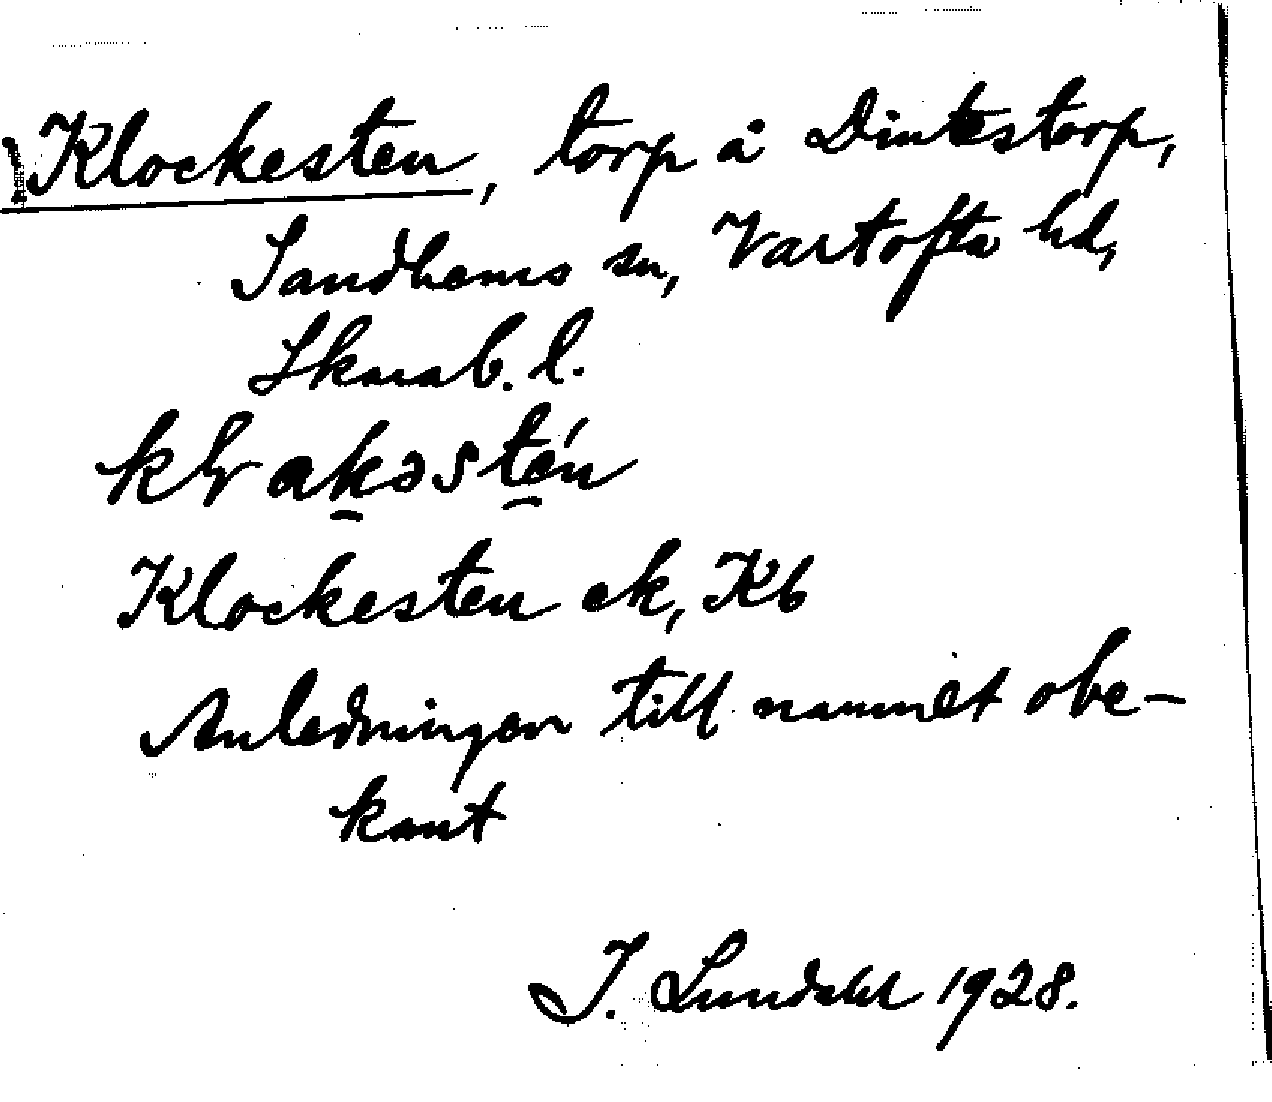 Klockesten, torp å Dintestorp,
Sandhems sn, Vartofta hd,
Skarab. l.
Klockesten ek, Kb
Anledningen till namnet obe-
kant
I. Lundahl 1928.